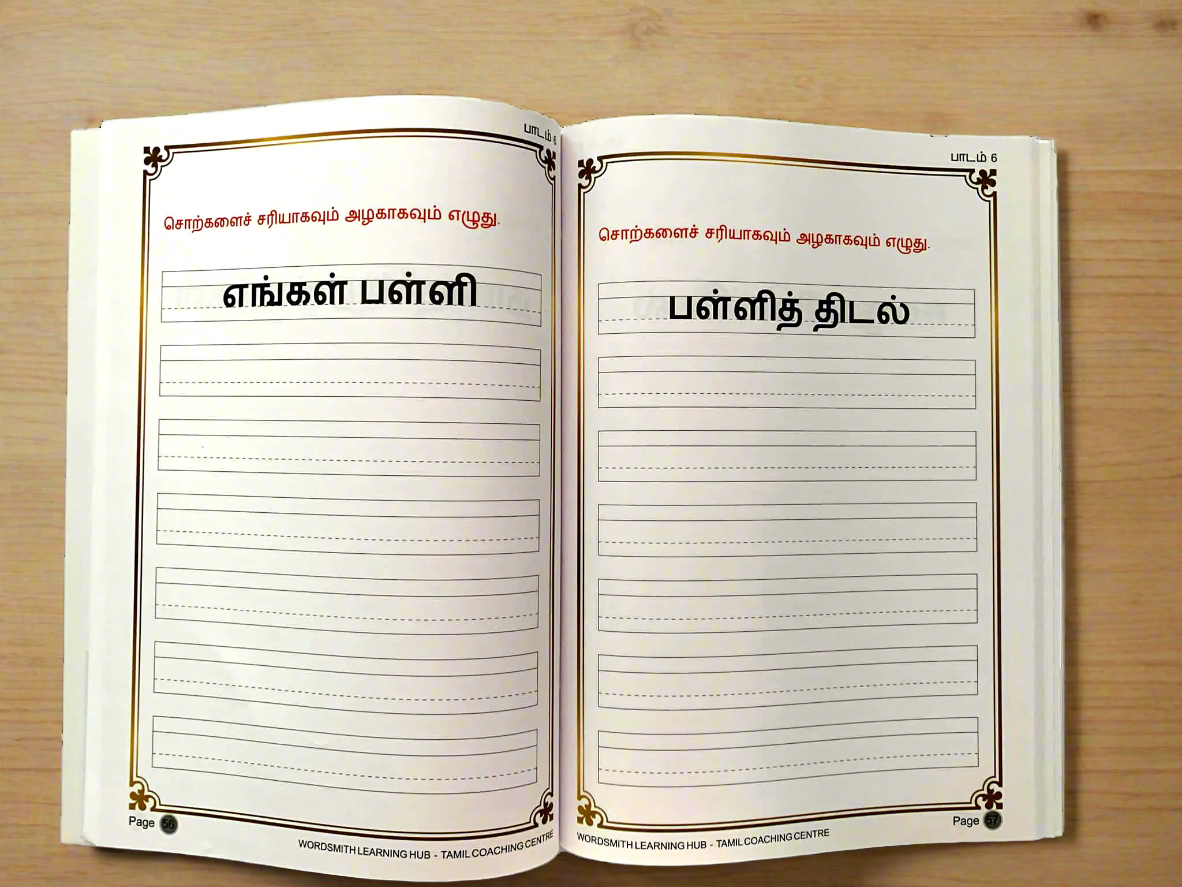 பாடம் 6
சொற்களைச் சரியாகவும் அழகாகவும் எழுது.
எங்கள் பள்ளி
Page 56
WORDSMITH LEARNING HUB - TAMIL COACHING CENTRE
பாடம் 6
சொற்களைச் சரியாகவும் அழகாகவும் எழுது.
பள்ளித் திடல்
Page 57
WORDSMITH LEARNING HUB - TAMIL COACHING CENTRE